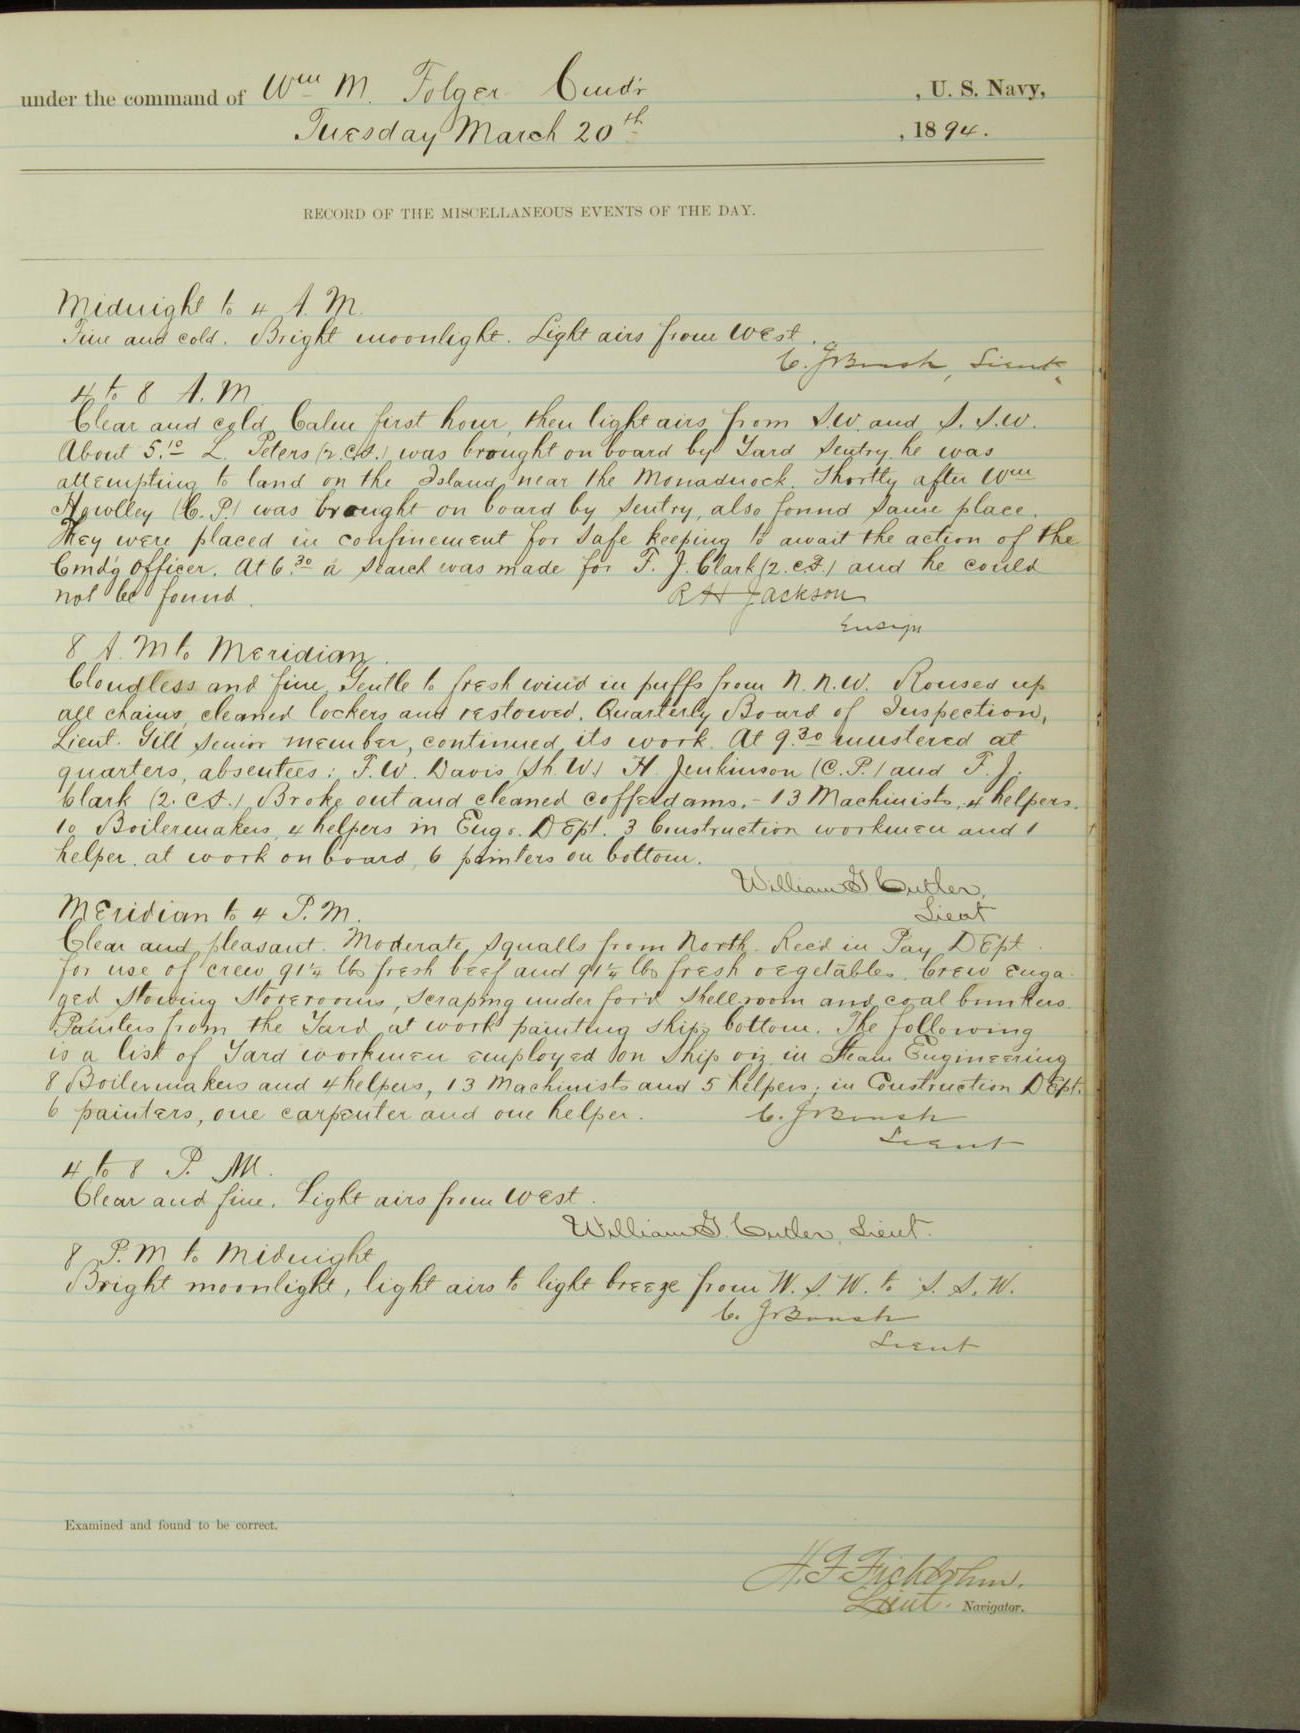 under the command of Wm M. Folger Cmdr , U. S. Navy,
Tuesday March 20th , 1894.
RECORD OF THE MISCELLANEOUS EVENTS OF THE DAY.
Midnight to 4 A. M.
Fine and cold. Bright moonlight. Light airs from West.
C. J. Boush, Lieut.
4 to 8 A. M.
Clear and cold, Calm first hour, then light airs from S.W. and S. S.W.
About 5.10 L. Peters (2.C.S.) was brought on board by Yard Sentry. he was
attempting to land on the Island near the Monadnock. Shortly after Wm
Howlley (C. P.) was brought on board by sentry, also found same place.
They were placed in confinement for safe keeping to await the action of the
Cmd'g Officer. At 6.30 a search was made for T. J. Clark (2. C.S.) and he could
not be found.
R H Jackson
Ensign
8 A. M to Meridian.
Cloudless and fine, Gentle to fresh wind in puffs from N. N. W. Roused up
all chains, cleaned lockers and restowed. Quarterly Board of Inspection,
Lieut. Gill senior member, continued its work. At 9.30 mustered at
quarters, absentees: F. W. Davis (Sh. W.) H. Jenkinson (C. P.) and T. J.
Clark (2. C.S.) Broke out and cleaned cofferdams. - 13 Machinists, 4 helpers.
10 Boilermakers, 4 helpers in Engr. DEpt. 3 Construction workmen and 1
helper. at work on board, 6 painters on bottom.
William G Cutler,
Lieut
Meridian to 4 P. M.
Clear and pleasant. Moderate squalls from North. Rec'd in Pay DEpt.
for use of crew 91 1/4 lbs fresh beef and 91 1/4 lbs fresh vegetables. Crew enga-
ged stowing storerooms, scraping under for'd shellroom and coal bunkers.
Painters from the Yard at work painting ships bottom. The following
is a list of Yard workmen employed on ship viz in Steam Engineering
8 Boilermakers and 4 helpers, 13 Machinists and 5 helpers; in Construction DEpt.
6 painters, one carpenter and one helper.
C. J. Boush
Lieut
4 to 8 P. M.
Clear and fine. Light airs from West.
William G. Cutler, Lieut.
8 P. M to Midnight
Bright moonlight, light airs to light breeze from W. S. W. to S. S. W.
C. J. Boush
Lieut
Examined and found to be correct.
H. F. Fickbohm.
Lieut. Navigator.